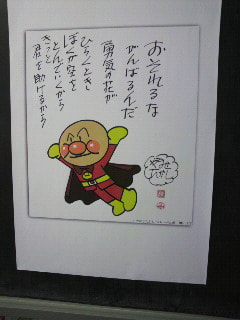 おそれるな
がんばるんだ
勇気の花が
ひらくとき
ぼくが空を
とんでいくから
きっと
君を助けるから
やなせ
たかし